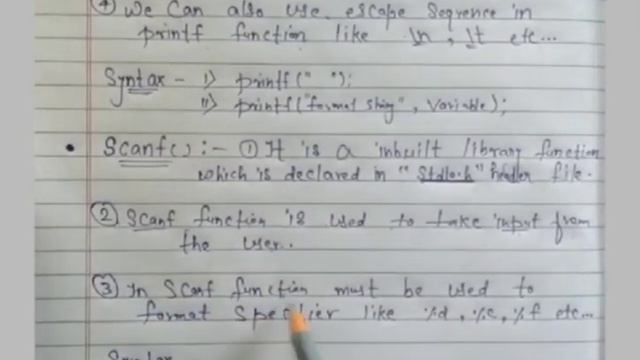 ④ We Can also use escape Sequence in
printf function like \n, \t etc...
Syntax - i) printf(" ");
ii) printf("format string", Variable);
• Scanf() :- ① It is a inbuilt library function
which is declared in "Stdio.h" header file.
② Scanf function is used to take input from
the user..
③ In Scanf function must be used to
format specifier like %d, %c, %f etc...